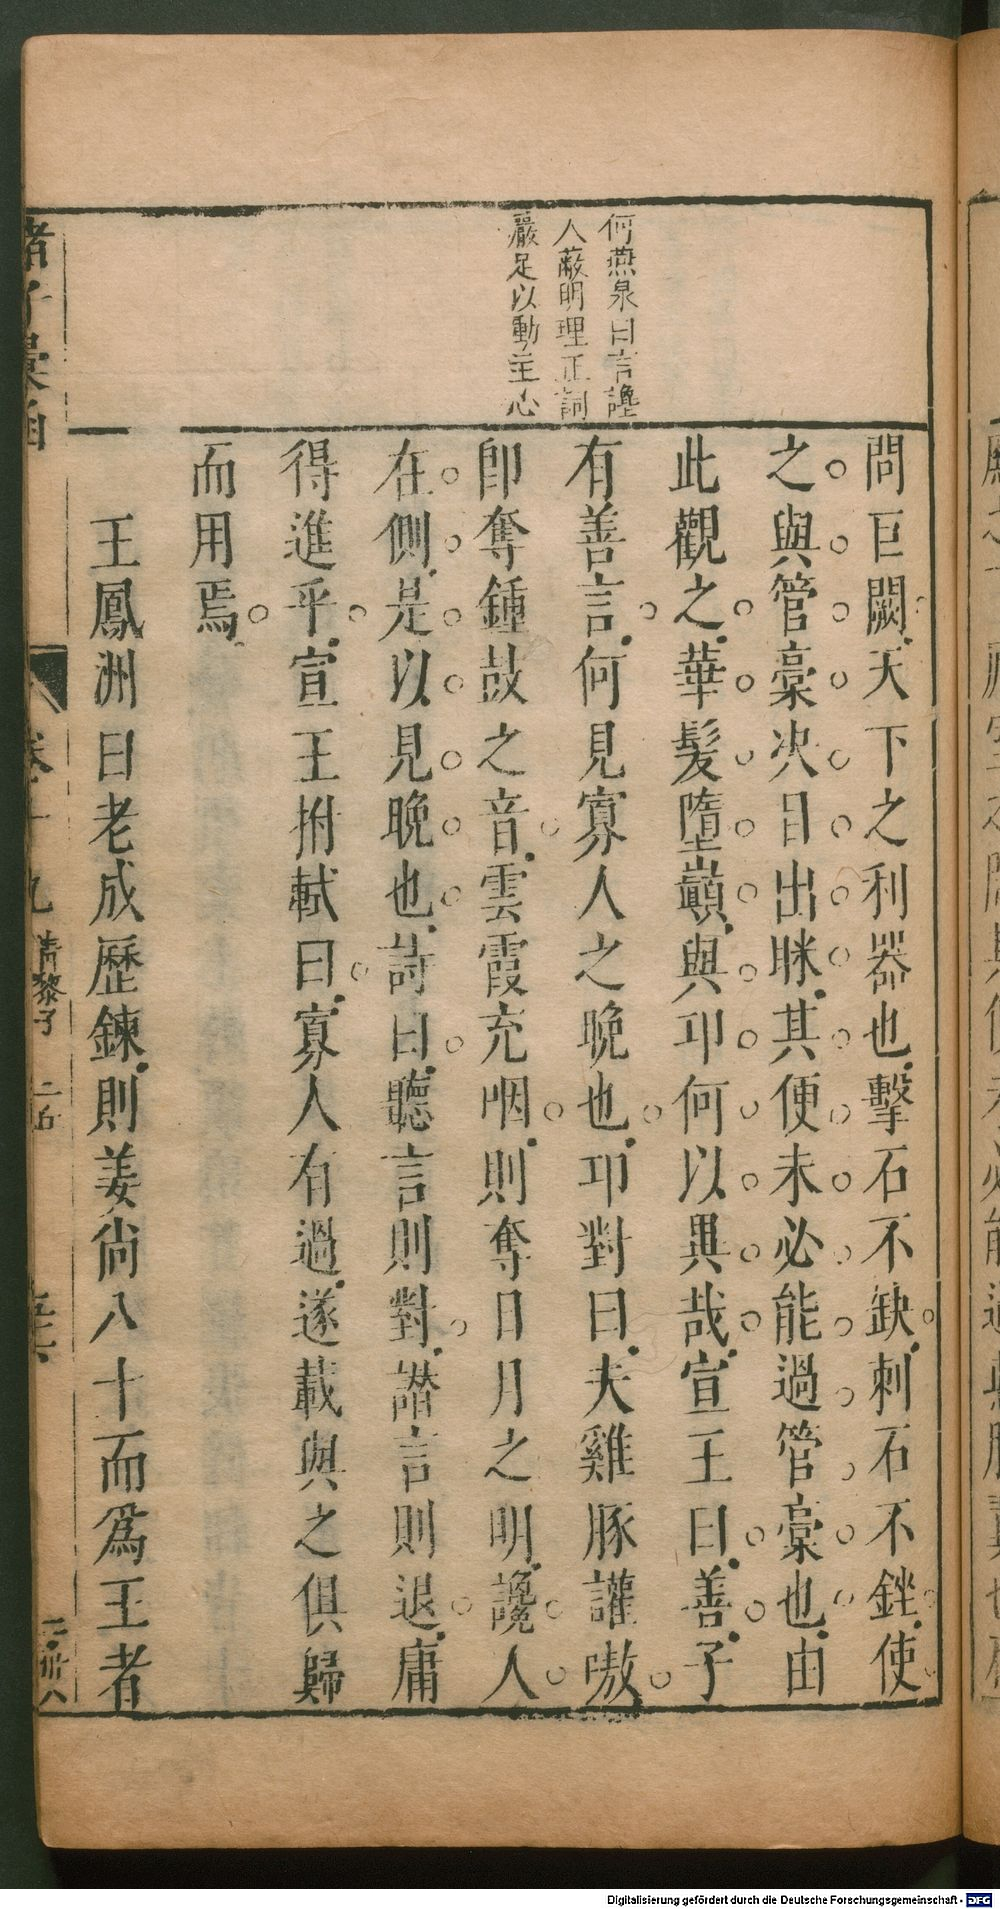 何燕泉曰言讒
人蔽明理正詞
嚴足以動主心
問巨闕天下之利器也擊石不缺刺石不銼使
之與管槀决目出眯其便未必能過管槀也由
此觀之華髮墮巔與卭何以異哉宣王曰善子
有善言何見寡人之晚也卭對曰夫雞豚讙嗷
卽奪鍾鼓之音雲霞充咽則奪日月之明讒人
在側是以見晚也詩曰聽言則對譖言則退庸
得進乎宣王拊軾曰寡人有過遂載與之俱歸
而用焉
王鳳洲曰老成歷鍊則姜尙八十而爲王者
諸子彙函
卷十九
青黎子
Digitalisierung gefördert durch die Deutsche Forschungsgemeinschaft - DFG